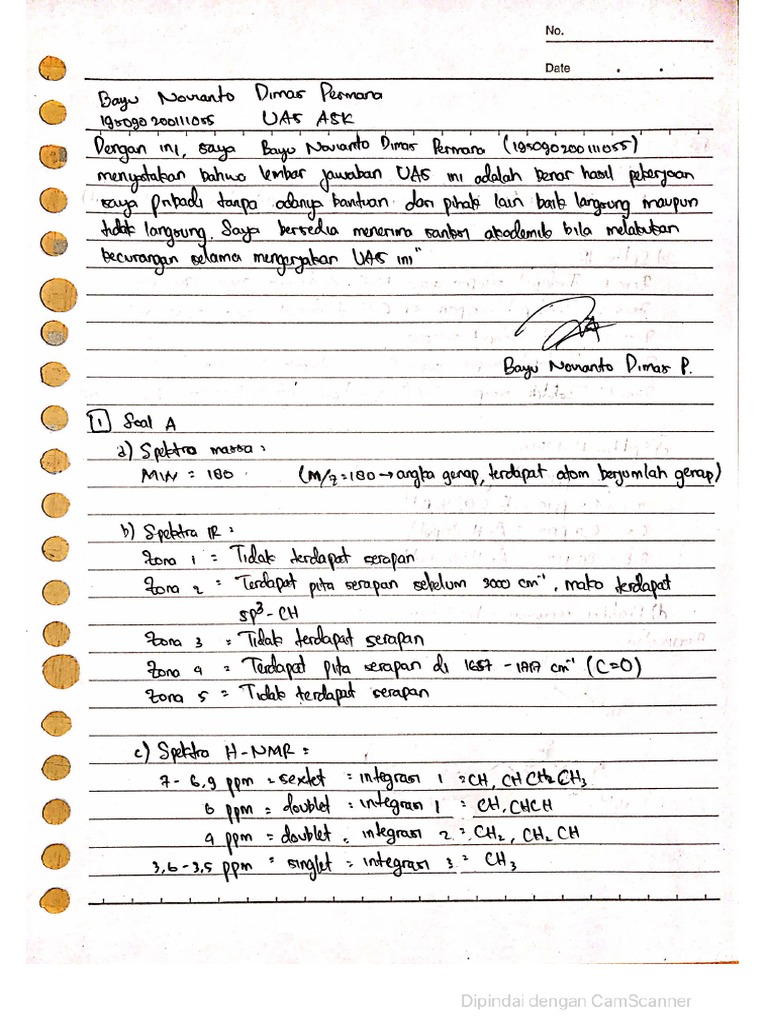 No.
Date . .
Bayu Novianto Dimas Permana
195090200111055 UAS ASK
Dengan ini, saya Bayu Novianto Dimas Permana (195090200111055)
menyatakan bahwa lembar jawaban UAS ini adalah benar hasil pekerjaan
saya pribadi tanpa adanya bantuan dari pihak lain baik langsung maupun
tidak langsung. Saya bersedia menerima sanksi akademik bila melakukan
kecurangan selama mengerjakan UAS ini"
Bayu Novianto Dimas P.
1 Soal A
a) Spektra massa :
MW = 180 (M/z = 180 → angka genap, terdapat atom berjumlah genap)
b) Spektra IR :
Zona 1 = Tidak terdapat serapan
Zona 2 = Terdapat pita serapan sebelum 3000 cm⁻¹, maka terdapat
sp³-CH
Zona 3 = Tidak terdapat serapan
Zona 4 = Terdapat pita serapan di 1657 - cm⁻¹ (C=O)
Zona 5 = Tidak terdapat serapan
c) Spektra H-NMR :
7 - 6,9 ppm = sextet = integrasi 1 = CH, CHCH₂CH₃
6 ppm = doublet = integrasi 1 = CH, CHCH
4 ppm = doublet = integrasi 2 = CH₂, CH₂CH
3,6 - 3,5 ppm = singlet = integrasi 3 = CH₃
Dipindai dengan CamScanner